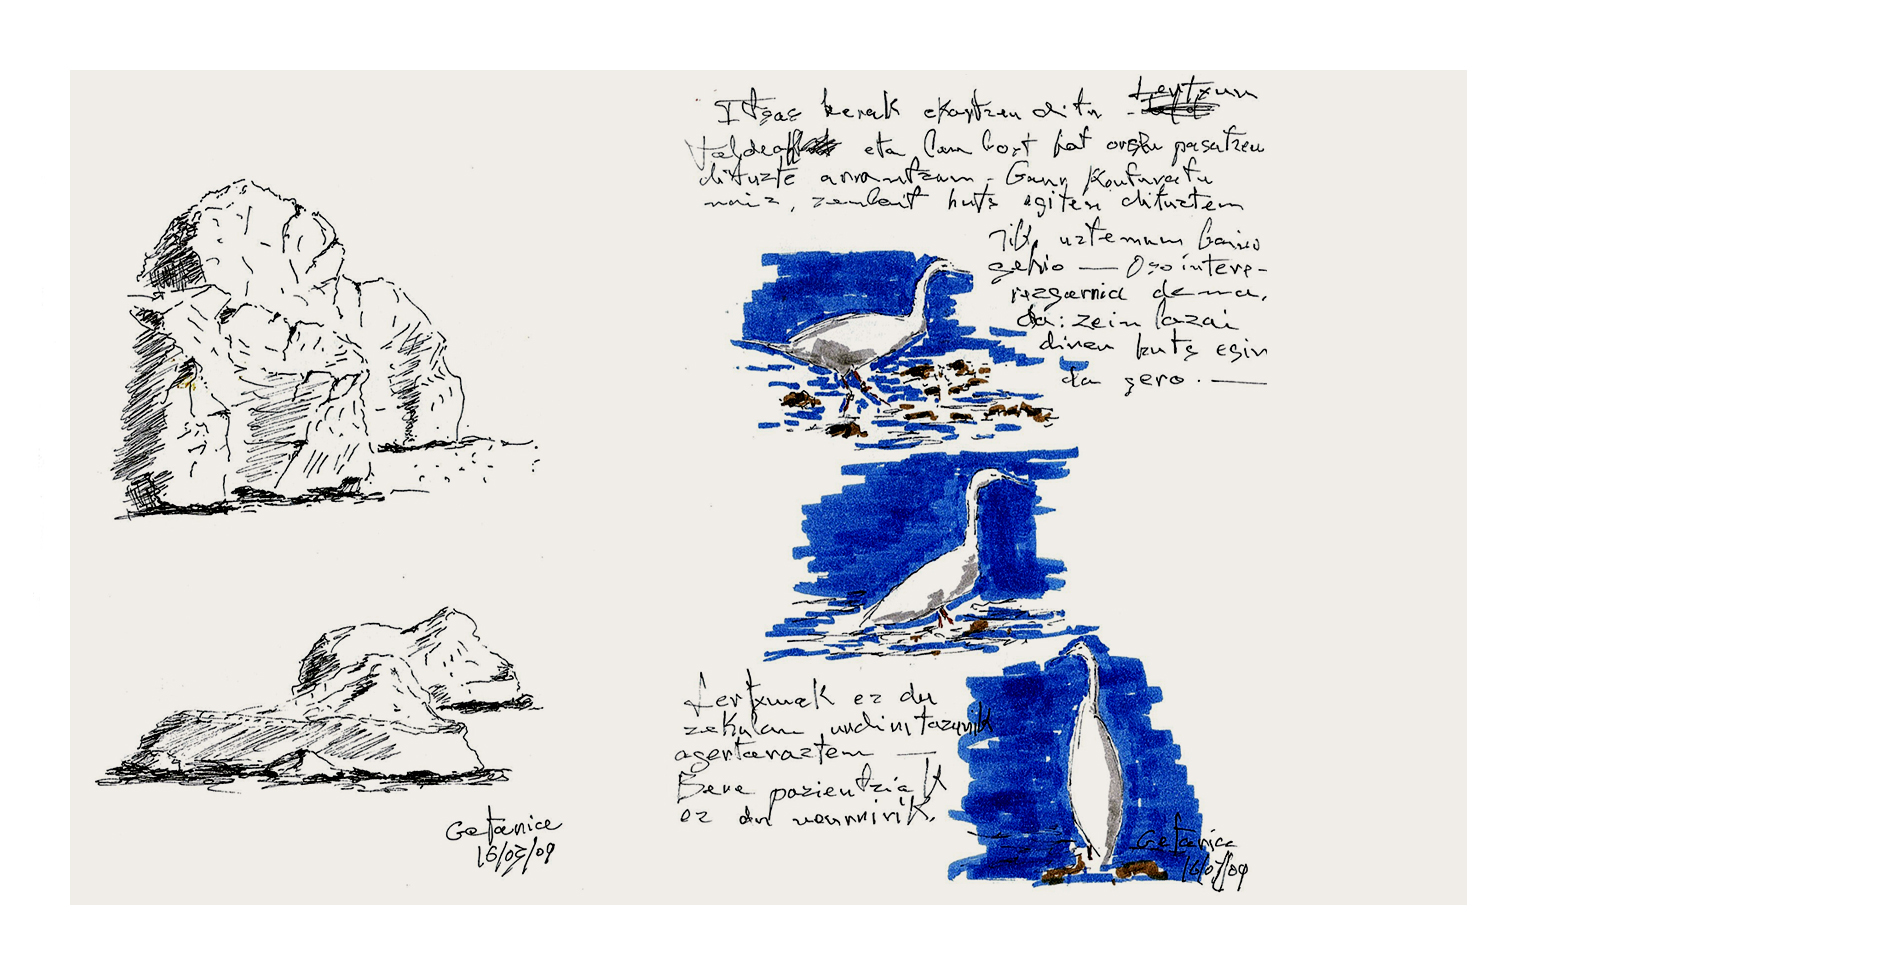 Itsas berak ekartzen ditu Lertxun
taldeak eta lan bost bat ordu pasatzen
dituzte arrantzan. Gaur konturatu
naiz, zenbait huts egiten dituzten
uztenun baino
gehio — Oso intere-
rezgarria dena,
da: zein lazai
diren huts egin
da gero. —
Lertxunak ez du
zekulan urduritazunik
agertarazten —
Bere pazientziak
ez du
Getarice
16/05/09
Getarice
16/05/09